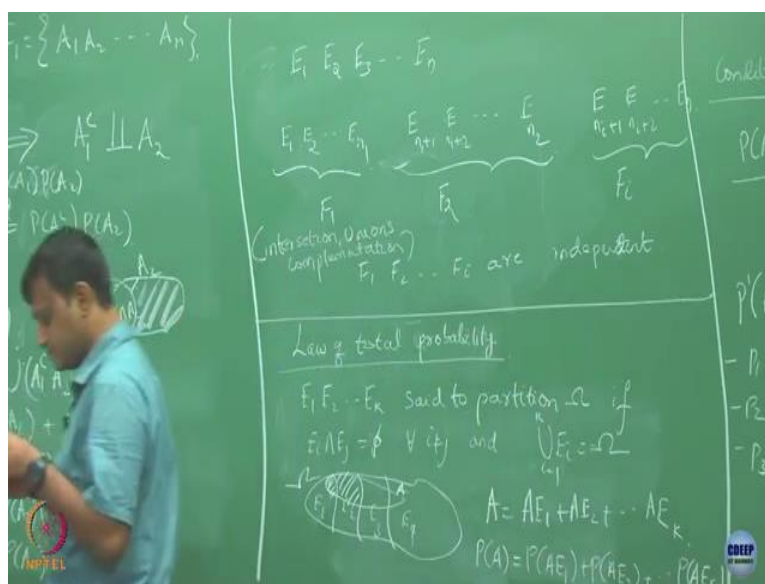 F₁ = {A₁ A₂ ⋯ Aₙ}.
⇒ A₁ᶜ ⫫ A₂
P(A₂)
= P(A₁ᶜ) P(A₂)
A₂
E₁ E₂ E₃ ⋯ Eₙ
E₁ E₂ ⋯ Eₙ₁ Eₙ₁₊₁ Eₙ₁₊₂ ⋯ Eₙ₂ E E ⋯ E
F₁ F₂ Fᵢ
(intersetion, Unions
complementation)
F₁ F₂ ⋯ Fᵢ are independent
Law of total probability
E₁ E₂ ⋯ Eₖ said to partition Ω if
Eᵢ ∩ Eⱼ = φ ∀ i≠j and ⋃ᵢ₌₁ᵏ Eᵢ = Ω
Ω E₁ A E₄
A = AE₁ + AE₂ + ⋯ AEₖ
P(A) = P(AE₁) + P(AE₂) ⋯ P(AE
Condit
P(A
P'(
- P₁
- P₂
- P₃
NPTEL
CDEEP